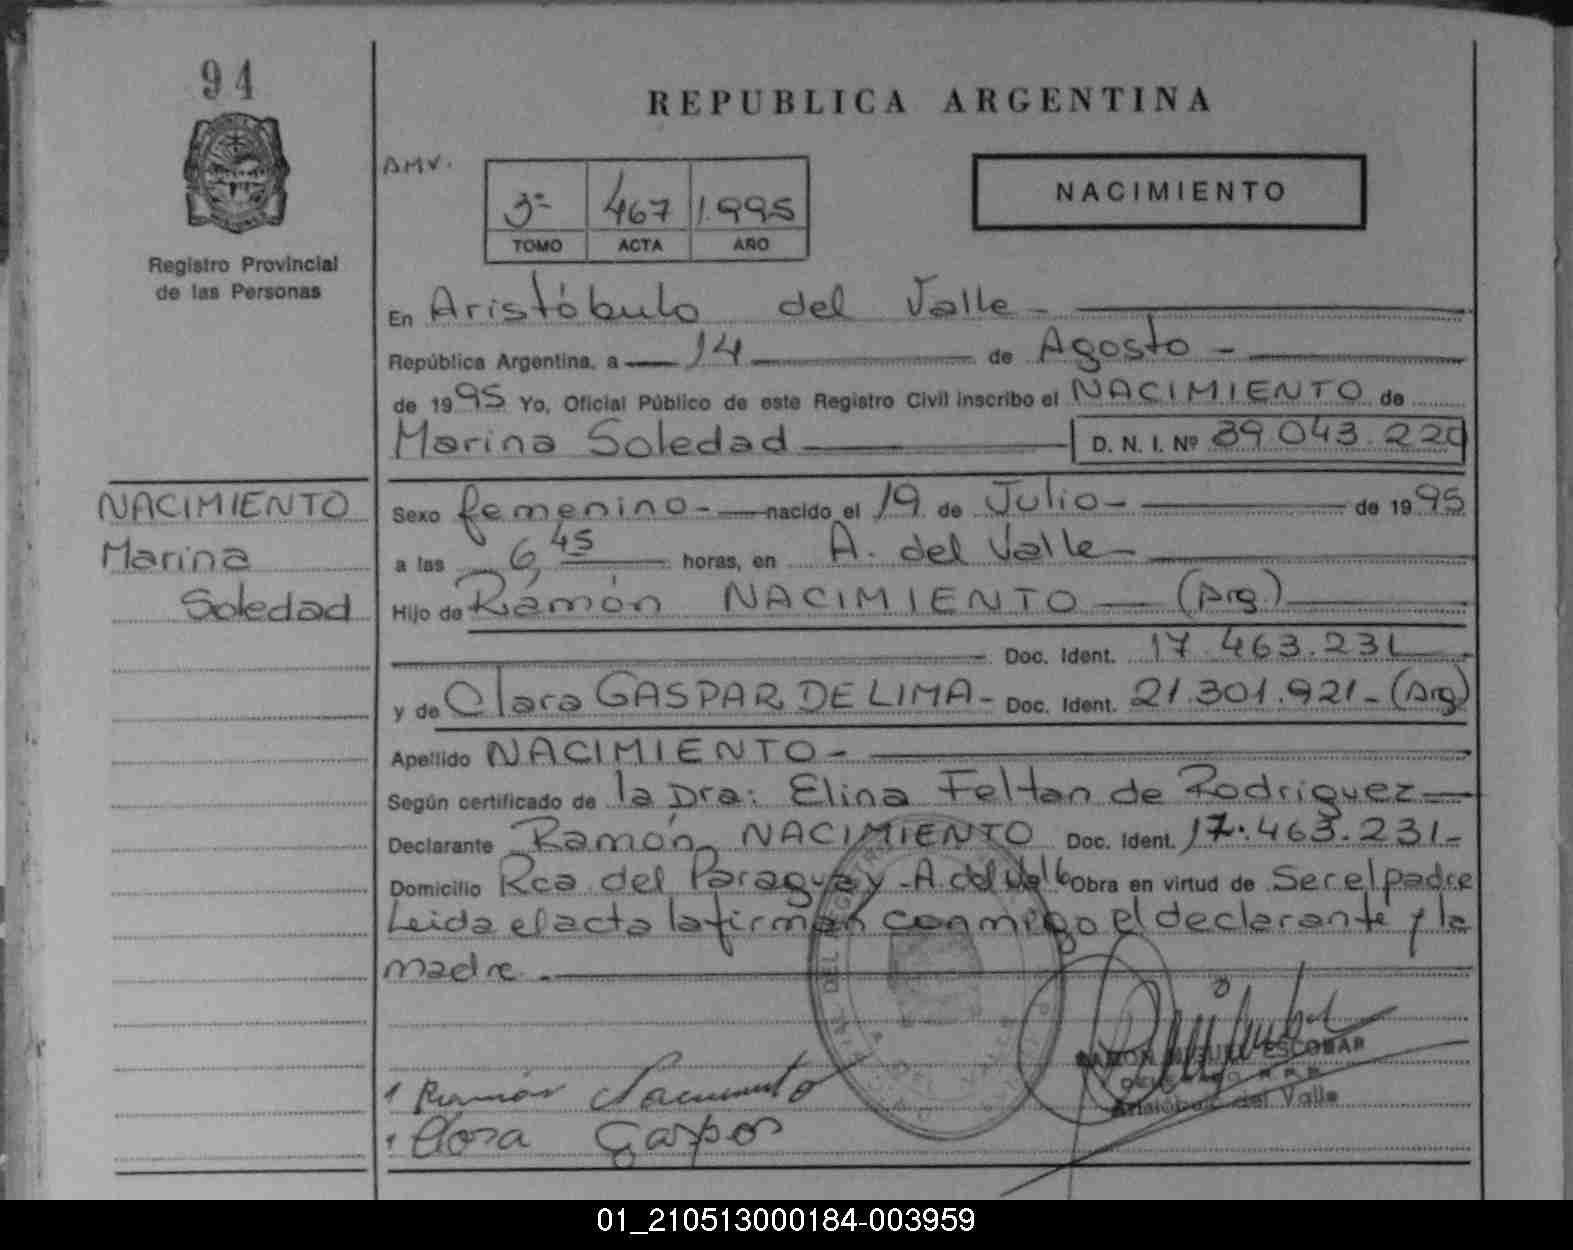 94
REPUBLICA ARGENTINA
AMV.
3º 467 1.995
TOMO ACTA AÑO
NACIMIENTO
Registro Provincial
de las Personas
En Aristóbulo del Valle -
República Argentina, a 14 de Agosto -
de 1995 Yo, Oficial Público de este Registro Civil inscribo el NACIMIENTO de
Marina Soledad D. N. I. Nº 39.043.220
NACIMIENTO
Marina
Soledad
Sexo femenino - nacido el 19 de Julio - de 1995
a las 6,45 horas, en A. del Valle -
Hijo de Ramón NACIMIENTO (Arg.)
Doc. Ident. 17.463.231
y de Clara GASPAR DE LIMA - Doc. Ident. 21.301.921 - (Arg)
Apellido NACIMIENTO -
Según certificado de la Dra: Elina Feltan de Rodriguez
Declarante Ramón NACIMIENTO Doc. Ident. 17.463.231 -
Domicilio Rca del Paraguay - A del Valle Obra en virtud de Ser el padre
Leida el acta la firman conmigo el declarante y la
madre -
Ramón Nacimiento
Clara Gaspar
RAMON MIGUEL ESCOBAR
DELEGADO R.R.P.
Aristóbulo del Valle
01_210513000184-003959